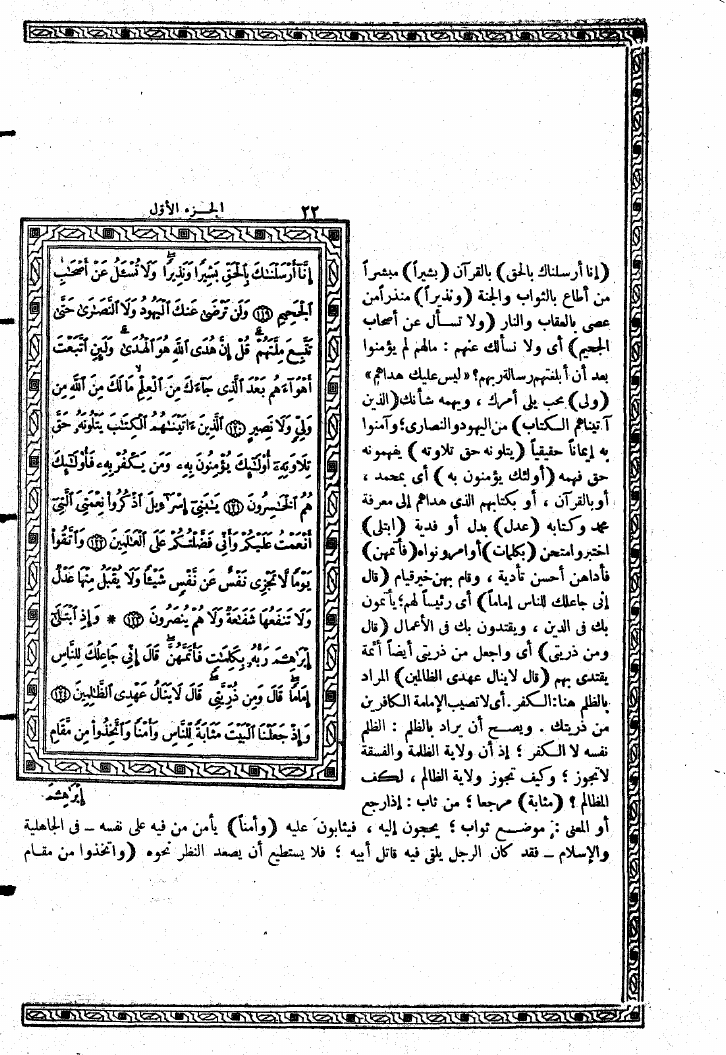 ٢٢ الجزء الأول
إِنَّآ أَرْسَلْنَٰكَ بِٱلْحَقِّ بَشِيرًا وَنَذِيرًا ۖ وَلَا تُسْـَٔلُ عَنْ أَصْحَٰبِ
ٱلْجَحِيمِ ۝١١٩ وَلَن تَرْضَىٰ عَنكَ ٱلْيَهُودُ وَلَا ٱلنَّصَٰرَىٰ حَتَّىٰ
تَتَّبِعَ مِلَّتَهُمْ ۗ قُلْ إِنَّ هُدَى ٱللَّهِ هُوَ ٱلْهُدَىٰ ۗ وَلَئِنِ ٱتَّبَعْتَ
أَهْوَآءَهُم بَعْدَ ٱلَّذِى جَآءَكَ مِنَ ٱلْعِلْمِ ۙ مَا لَكَ مِنَ ٱللَّهِ مِن
وَلِىٍّ وَلَا نَصِيرٍ ۝١٢٠ ٱلَّذِينَ ءَاتَيْنَٰهُمُ ٱلْكِتَٰبَ يَتْلُونَهُۥ حَقَّ
تِلَاوَتِهِۦٓ أُو۟لَٰٓئِكَ يُؤْمِنُونَ بِهِۦ ۗ وَمَن يَكْفُرْ بِهِۦ فَأُو۟لَٰٓئِكَ
هُمُ ٱلْخَٰسِرُونَ ۝١٢١ يَٰبَنِىٓ إِسْرَٰٓءِيلَ ٱذْكُرُوا۟ نِعْمَتِىَ ٱلَّتِىٓ
أَنْعَمْتُ عَلَيْكُمْ وَأَنِّى فَضَّلْتُكُمْ عَلَى ٱلْعَٰلَمِينَ ۝١٢٢ وَٱتَّقُوا۟
يَوْمًا لَّا تَجْزِى نَفْسٌ عَن نَّفْسٍ شَيْـًٔا وَلَا يُقْبَلُ مِنْهَا عَدْلٌ
وَلَا تَنفَعُهَا شَفَٰعَةٌ وَلَا هُمْ يُنصَرُونَ ۝١٢٣ * وَإِذِ ٱبْتَلَىٰٓ
إِبْرَٰهِۦمَ رَبُّهُۥ بِكَلِمَٰتٍ فَأَتَمَّهُنَّ ۖ قَالَ إِنِّى جَاعِلُكَ لِلنَّاسِ
إِمَامًا ۖ قَالَ وَمِن ذُرِّيَّتِى ۖ قَالَ لَا يَنَالُ عَهْدِى ٱلظَّٰلِمِينَ ۝١٢٤
وَإِذْ جَعَلْنَا ٱلْبَيْتَ مَثَابَةً لِّلنَّاسِ وَأَمْنًا وَٱتَّخِذُوا۟ مِن مَّقَامِ
إِبْرَٰهِۦمَ
(إنا أرسلناك بالحق) بالقرآن (بشيراً) مبشراً
من أطاع بالثواب والجنة (ونذيراً) منذراً من
عصى بالعقاب والنار (ولا تسأل عن أصحاب
الجحيم) أى ولا نسألك عنهم : مالهم لم يؤمنوا
بعد أن أبلغتهم رسالة ربهم؟ «ليس عليك هداهم»
(ولى) محب يلى أمرك ، ويهمه شأنك (الذين
آتيناهم الكتاب) من اليهود والنصارى؛ وآمنوا
به إيماناً حقيقياً (يتلونه حق تلاوته) يفهمونه
حق فهمه (أولئك يؤمنون به) أى بمحمد ،
أو بالقرآن ، أو بكتابهم الذى هداهم إلى معرفة
محمد وكتابه (عدل) بدل أو فدية (ابتلى)
اختبر وامتحن (بكلمات) أوامر ونواه (فأتمهن)
فأداهن أحسن تأدية ، وقام بهن خير قيام (قال
إنى جاعلك للناس إماماً) أى رئيساً لهم؛ يأتمون
بك فى الدين ، ويقتدون بك فى الأعمال (قال
ومن ذريتى) أى واجعل من ذريتى أيضاً أئمة
يقتدى بهم (قال لا ينال عهدى الظالمين) المراد
بالظلم هنا : الكفر . أى لا تصيب الإمامة الكافرين
من ذريتك . ويصح أن يراد بالظلم : الظلم
نفسه لا الكفر ؛ إذ أن ولاية الظلمة والفسقة
لا تجوز ؛ وكيف تجوز ولاية الظالم ، لكف
المظالم ؟ (مثابة) مرجعا ؛ من ثاب : إذا رجع
أو المعنى : موضع ثواب ؛ يحجون إليه ، فيثابون عليه (وأمناً) يأمن من فيه على نفسه – فى الجاهلية
والإسلام – فقد كان الرجل يلقى فيه قاتل أبيه ؛ فلا يستطيع أن يصعد النظر نحوه (واتخذوا من مقام